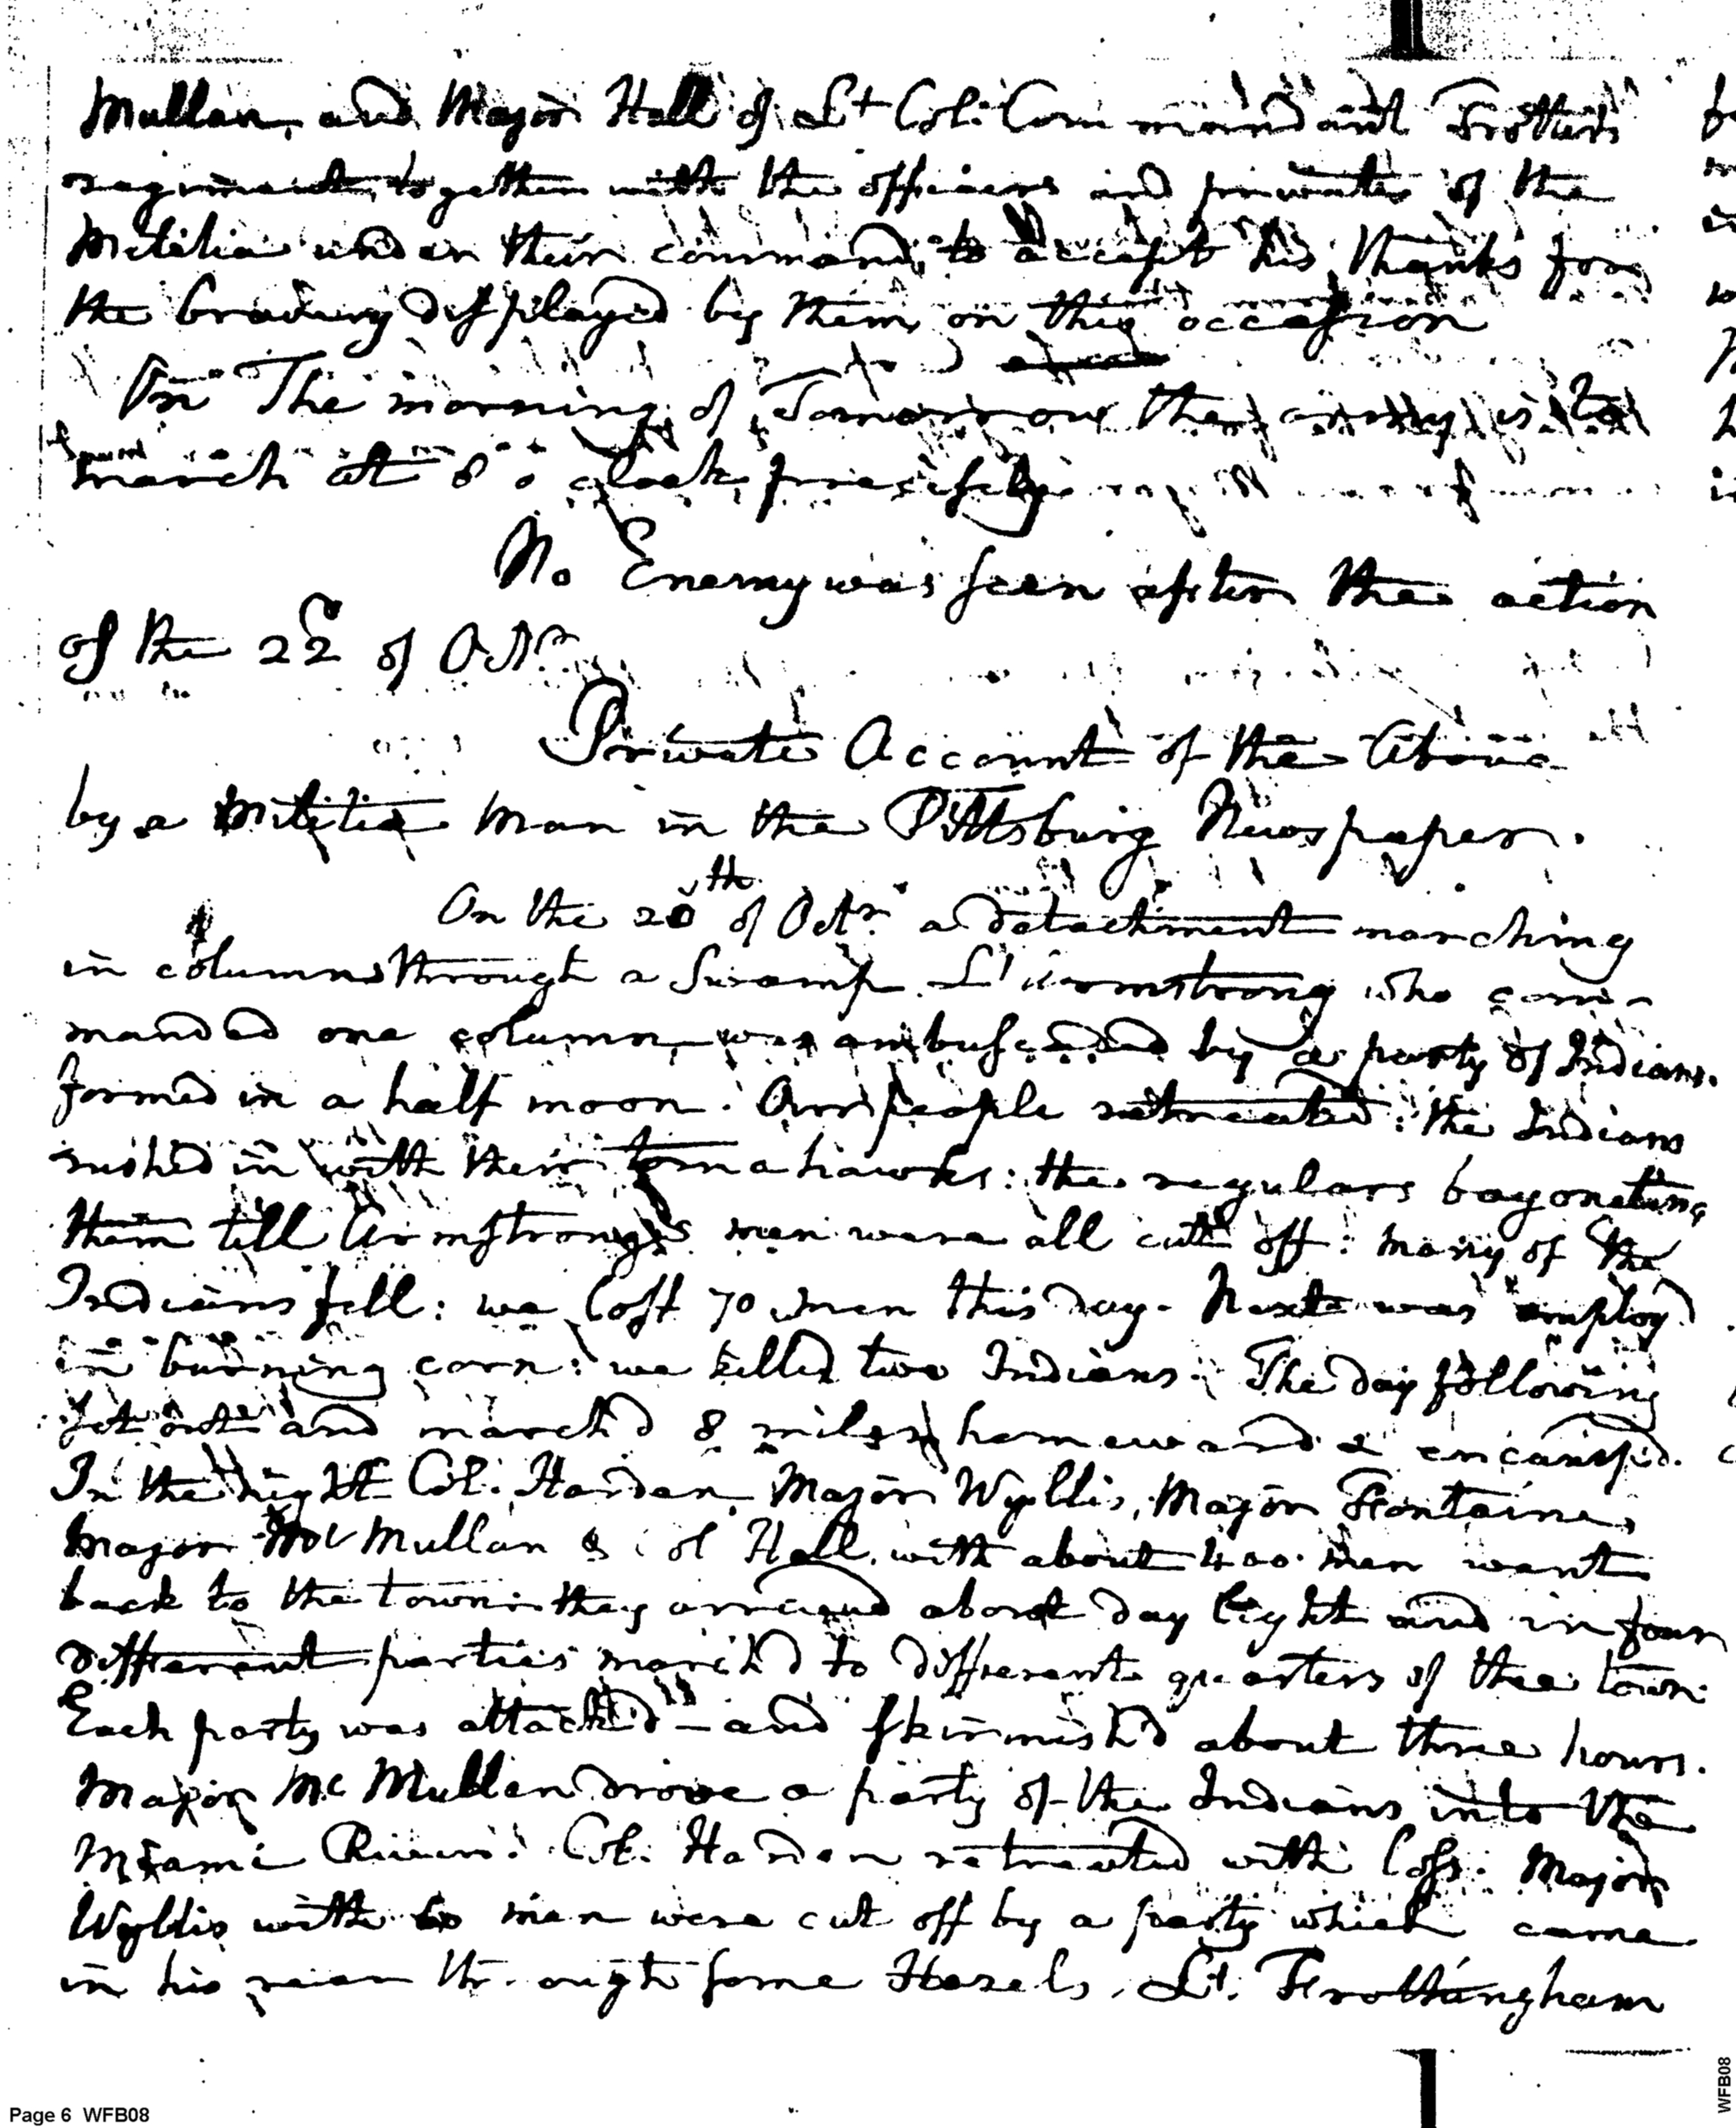 Mullan, and Major Hall of Lt Col. Commandant Trotters
regiment, together with the officers and privates of the
Militia under their command, to accept his thanks for
the bravery displayed by them on this occasion
On The morning of Tomorrow the army is to
march at 8 o clock, precisely
No Enemy was seen after the action
of the 22d of Octr.
Private Account of the Above
by a Militia man in the Pittsburg Newspaper.
On the 20th of Octr. a detachment marching
in columns through a Swamp. Lt Armstrong who com-
manded one column, was ambuscaded by a party of Indians.
formed in a half moon. Our people retreated: the Indians
rushed in with their tomahawks: the regulars bayoneting
them till Armstrongs men were all cut off: many of the
Indians fell: we lost 70 men this day. Next was employd
in burning corn: we killed two Indians. The day following
set out and march'd 8 miles homeward & encamp'd.
In the night Col. Harden, Major Wyllis, Major Fontaine,
Major McMullan & Col Hall, with about 400 men went
back to the town: they arrived about day light and in four
different parties march'd to different quarters of the town:
Each party was attack'd - and skirmish'd about three hours.
Major McMullen drove a party of the Indians into the
Miami River. Col. Harden retreated with loss. Major
Wyllis with 60 men were cut off by a party which came
in his rear through some Hazels. Lt. Frothingham
Page 6 WFB08
WFB08